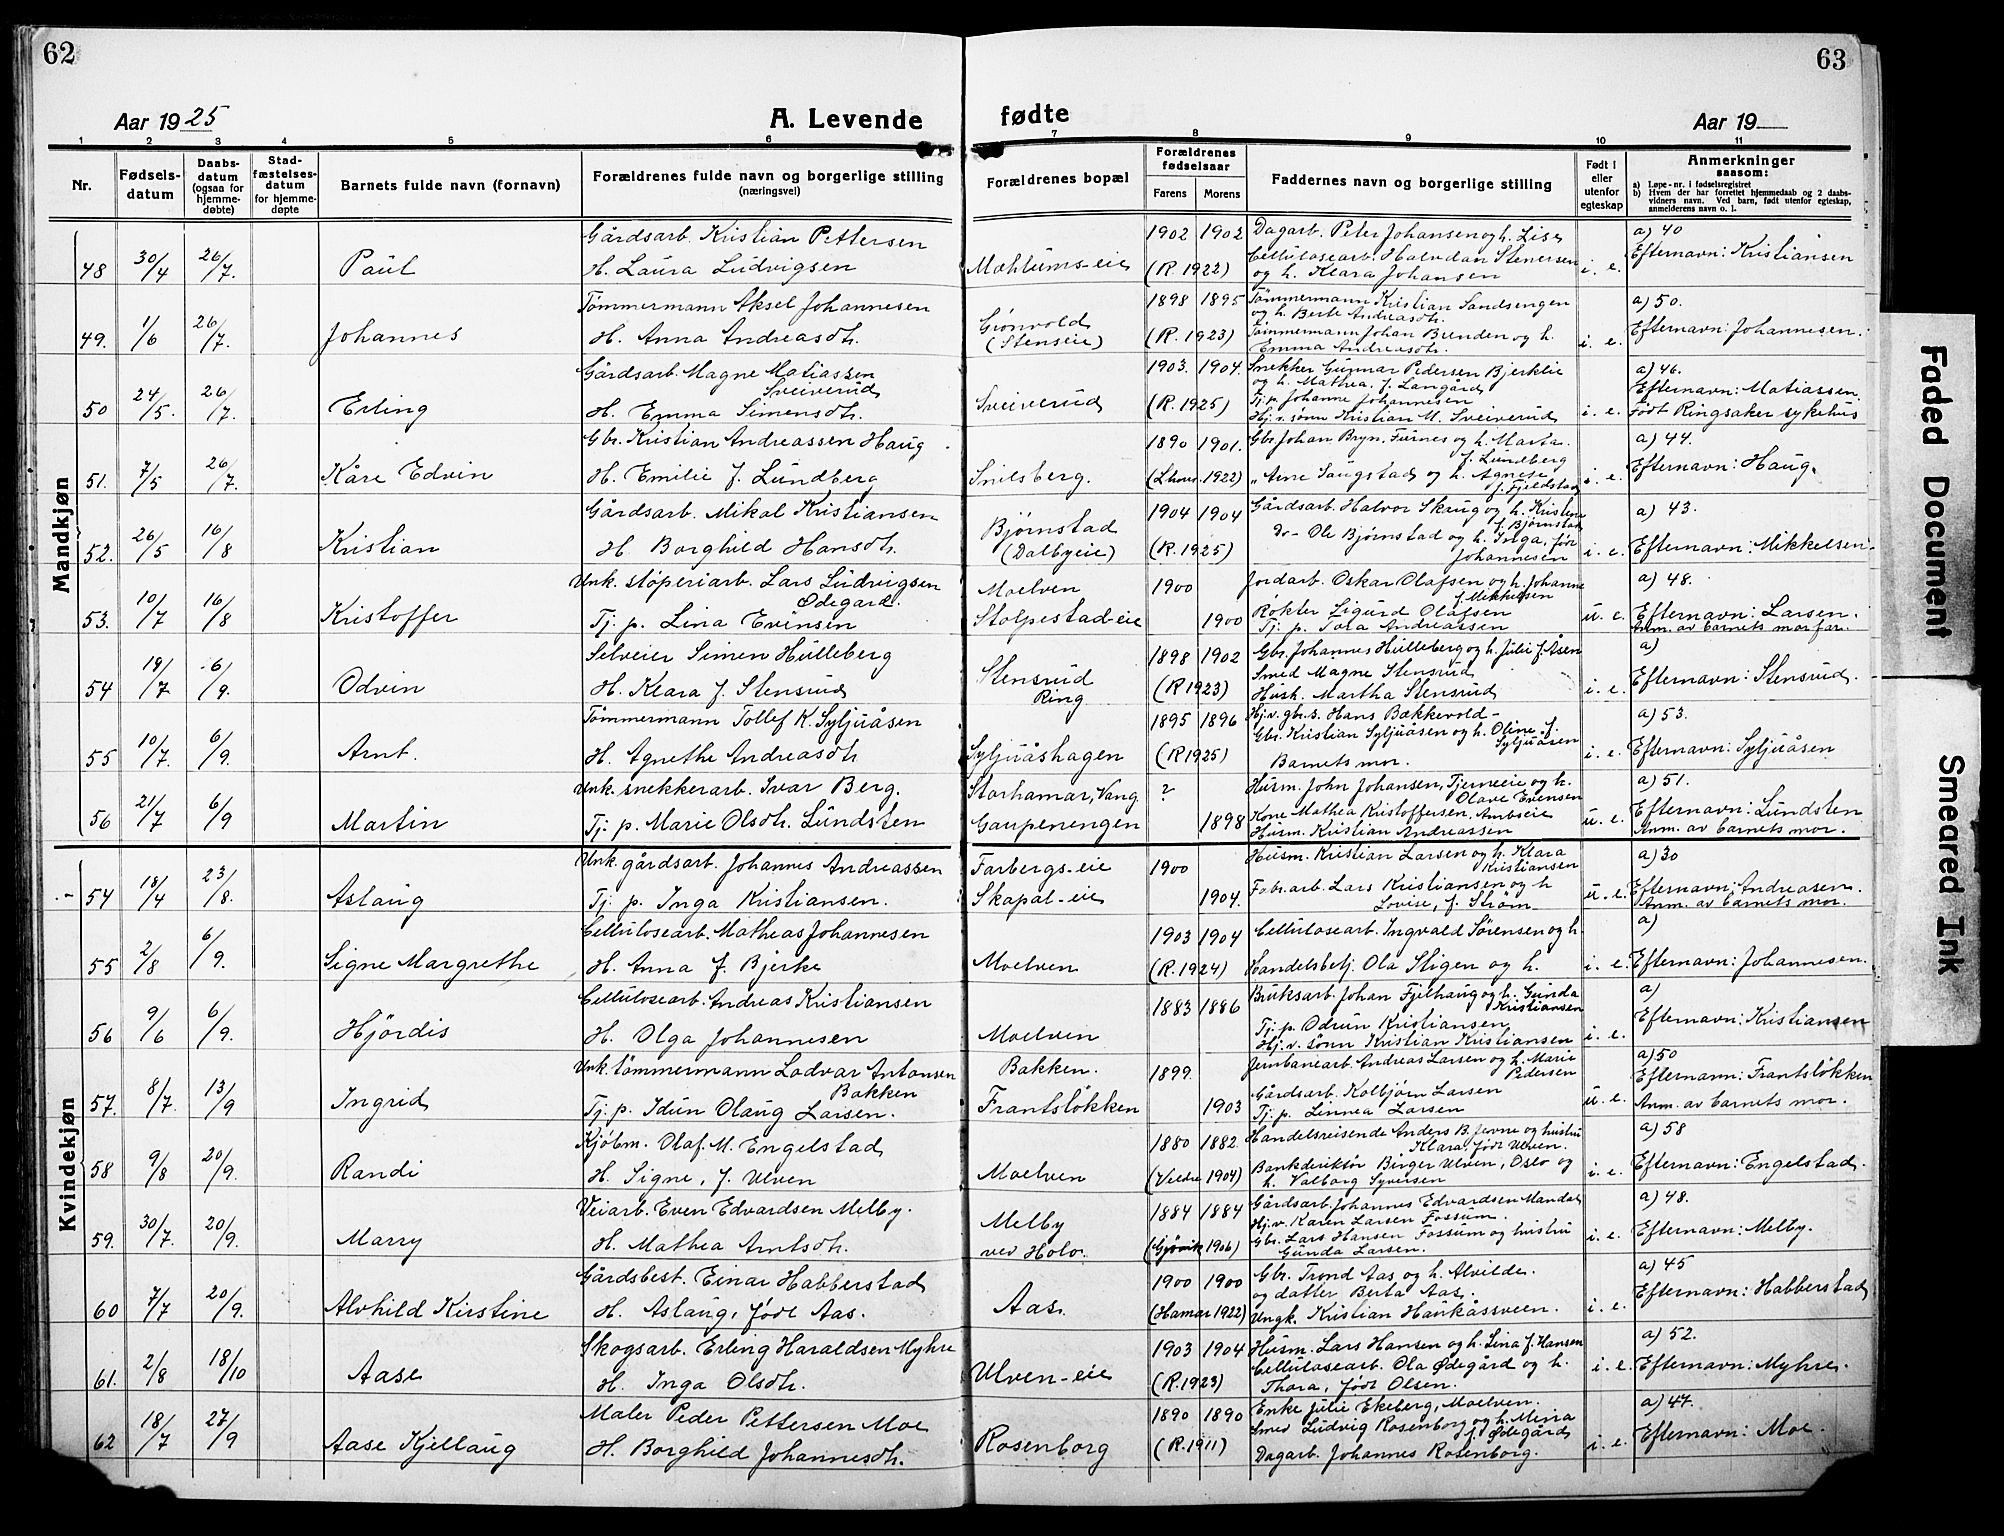 62
63
Aar 1925
A. Levende
fødte
Aar 19
1 2 3 4 5 6 7 8 9 10 11
Nr.
Fødsels-
datum
Daabs-
datum
(ogsaa for
hjemme-
døbte)
Stad-
fæstelses-
datum
for hjemme-
døpte
Barnets fulde navn (fornavn)
Forældrenes fulde navn og borgerlige stilling
(næringsvei)
Forældrenes bopæl
Forældrenes
fødselsaar
Farens
Morens
Faddernes navn og borgerlige stilling
Født i
eller
utenfor
egteskap
Anmerkninger
saasom:
a) Løpe-nr. i fødselsregistret
b) Hvem der har forrettet hjemmedaab og 2 daabs-
vidners navn. Ved barn, født utenfor egteskap,
anmelderens navn o. l.
Mandkjøn
Gårdsarb. Kristian Pettersen 1902 1902 Dagarb. Peter Johansen og h. Lise a) 40
48 30/4 26/7. Paul H. Laura Ludvigsen Mæhlums-eie (R. 1922) Cellulosearb. Halvdan Stenersen i. e. Efternavn: Kristiansen
og h. Klara Johansen
Tømmermann Aksel Johannesen 1898 1895 Tømmermann Kristian Sandsengen a) 50.
og h. Berte Andreasdtr.
49. 1/6 26/7. Johannes H. Anna Andreasdtr. Grønvold (R. 1923) Tømmermann Johan Brenden og h. i. e. Efternavn: Johannesen.
(Stenseie) Emma Andreasdtr.
Gårdsarb. Magne Matiassen 1903. 1904. Snekker Gunnar Pedersen Bjerklie a) 46.
Sveiverud og h. Mathea, f. Langård Efternavn: Matiassen
50 24/5. 26/7. Erling H. Emma Simensdtr. Sveiverud (R. 1925) Tj. p. Johanne Johannesen i. e. Født Ringsaker sykehus
Hj. v. sønn Kristian M. Sveiverud
Gbr. Kristian Andreassen Haug 1890 1901. Gbr Johan Bryn, Furnes og h. Marta a) 44.
f. Lundberg
51. 7/5 26/7. Kåre Edvin H. Emilie f. Lundberg Snilsberg. (Lhmr. 1922) „ Arne Saugstad og h. Agnese i. e. Efternavn: Haug.
f. Fjeldstad
Gårdsarb. Mikal Kristiansen 1904 1904 Gårdsarb. Halvor Skaug og h. Kristine a) 43.
f. Bjørnstad
52. 26/5 16/8 Kristian H. Borghild Hansdtr. Bjørnstad (R. 1925) Do- Ole Bjørnstad og h. Inga, født i. e. Efternavn: Mikkelsen
(Dalbyeie) Johannesen
Unk. støperiarb. Lars Ludvigsen Moelven 1900 Jordarb. Oskar Olafsen og h. Johanne a) 48.
Ødegard. f. Mikkelsen
53. 10/7 16/8 Kristoffer Tj. p. Lina Evensen Stolpestad-eie 1900 Røkter Sigurd Olafsen u. e. Efternavn: Larsen.
Tj. p. Tora Andreassen Anm. av barnets morfar.
Selveier Simen Hulleberg 1898 1902 Gbr. Johannes Hulleberg og h. Julie f. Åsen a)
54 19/7 6/9. Odvin H. Klara f. Stensrud Stensrud (R 1923) Smed Magne Stensrud i. e. Efternavn: Stensrud.
Ring Hush. Martha Stensrud
Tømmermann Tollef K. Syljuåsen 1895 1896 Hj. v. gbr. s. Hans Bakkevold - a) 53.
55 10/7. 6/9. Arnt. H. Agnethe Andreasdtr Syljuåshagen (R 1925) Gbr. Kristian Syljuåsen og h. Oline f. i. e. Efternavn: Syljuåsen
Syljuåsen
Barnets mor.
Unk. snekkerarb. Ivar Berg. Storhamar, Vang ? Husm. John Johansen, Tjerneeie og h. a) 51.
Olave Evensen
56 21/7 6/9 Martin Tj. p. Marie Olsdtr. Lundsten Gaupenengen 1898 Kone Mathea Kristoffersen, Ambseie u. e. Efternavn: Lundsten
Husm. Kristian Andreassen Anm. av barnets mor.
Kvindekjøn
Unk. gårdsarb. Johannes Andreassen Farbergs-eie 1900 Husm. Kristian Larsen og h. Klara a) 30
Kristiansen
54 18/4 23/8. Aslaug Tj. p. Inga Kristiansen. Skapal-eie 1904. Fabr.arb. Lars Kristiansen og h u. e. Efternavn: Andreasen.
Lovise, f. Strøm Anm. av barnets mor.
Cellulosearb. Matheas Johannesen 1903 1904 Cellulosearb. Ingvald Sørensen og h. a)
55 2/8 6/9. Signe Margrethe H. Anna f. Bjerke Moelven (R. 1924) Handelsbetj. Ola Stigen og h. i. e. Efternavn: Johannesen.
Cellulosearb. Andreas Kristiansen 1883 1886 Bruksarb. Johan Fjelhaug og h. Gunda a)
Kristiansen
56 9/6 6/9. Hjördis H. Olga Johannesen Moelven Tj. p. Odrun Kristiansen i. e. Efternavn: Kristiansen
Hj. v. sønn Kristian Kristiansen
Unk. tömmermann Lodvar Antonsen Bakken. 1899. Jernbanearb. Andreas Larsen og h. Marie a) 50
Bakken Pedersen Efternavn: Frantsløkken
57. 8/7. 13/9 Ingrid Tj. p. Idun Olaug Larsen. Frantsløkken 1903 Gårdsarb. Kolbjørn Larsen u. e. Anm. av barnets mor.
Tj. p. Linnea Larsen
Kjøbm. Olaf M. Engelstad 1880 1882. Handelsreisende Anders B. Jevne og hustru a) 58
Klara, født Ulven.
58 9/8 20/9. Randi H. Signe, f. Ulven Moelven (Veldre 1904) Bankdirektør Birger Ulven, Oslo og i. e. Efternavn: Engelstad.
h. Valborg Syversen
Veiarb. Even Edvardsen Melby. 1884 1884 Gårdsarb. Johannes Edvardsen Mandal a) 48.
Hj. v. Karen Larsen Fossum.
59. 30/7. 20/9. Marry H. Mathea Arntsdtr. Melby (Gjøvik 1906) Gbr. Lars Hansen Fossum og hustru i. e. Efternavn: Melby.
ved Holo. Gunda Larsen.
Gårdsbest. Einar Habberstad 1900 1900 Gbr. Trond Aas og h. Alvilde. a) 45
og datter Berta Aas.
60 7/7 20/9. Alvhild Kirstine H. Aslaug, født Aas. Aas. (Hamar 1922) Ungk. Kristian Hankåssveen. i. e. Efternavn: Habberstad
Skogsarb. Erling Haraldsen Myhre 1903 1904 Husm. Lars Hansen og h. Lina f. Hansen a) 52.
61. 2/8 18/10 Aase H. Inga Olsdtr. Ulven-eie (R. 1923) Cellulosearb. Ola Ødegård og h. i. e. Efternavn: Myhre.
Thora, født Olsen.
Maler Peder Pettersen Moe 1890 1890 Enke Julie Ekeberg, Moelven. a) 47.
62 18/7 27/9 Aase Kjellaug H. Borghild Johannesdtr. Rosenborg (R. 1911) Smed Ludvig Rosenborg og h. Mina i. e. Efternavn: Moe.
f. Ødegård
Dagarb. Johannes Rosenborg.
Faded Document
Smeared Ink